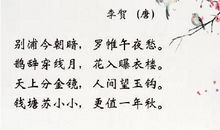 李贺（唐）
别浦今朝暗，罗帷午夜愁。
鹊辞穿线月，花入曝衣楼。
天上分金镜，人间望玉钩。
钱塘苏小小，更值一年秋。